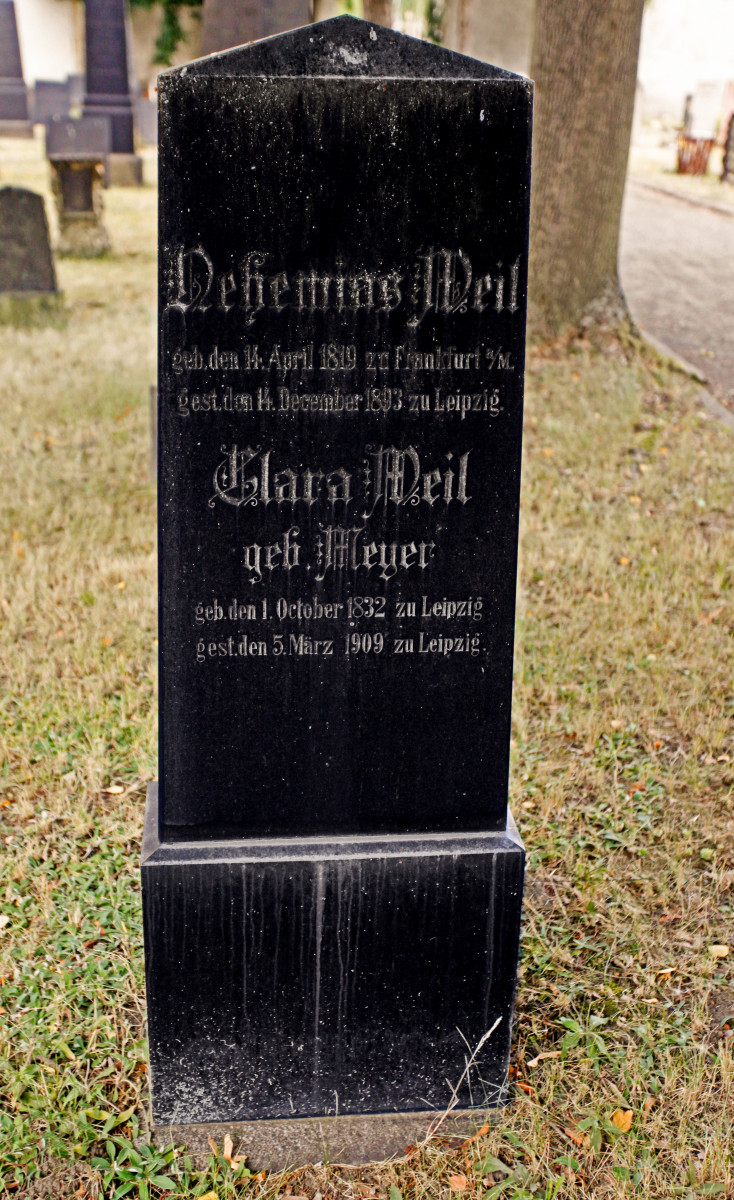 Nehemias Weil
geb. den 14. April 1819 zu Frankfurt a/M.
gest. den 14. December 1893 zu Leipzig.
Clara Weil
geb. Meyer
geb. den 1. October 1832 zu Leipzig
gest. den 5. März 1909 zu Leipzig.